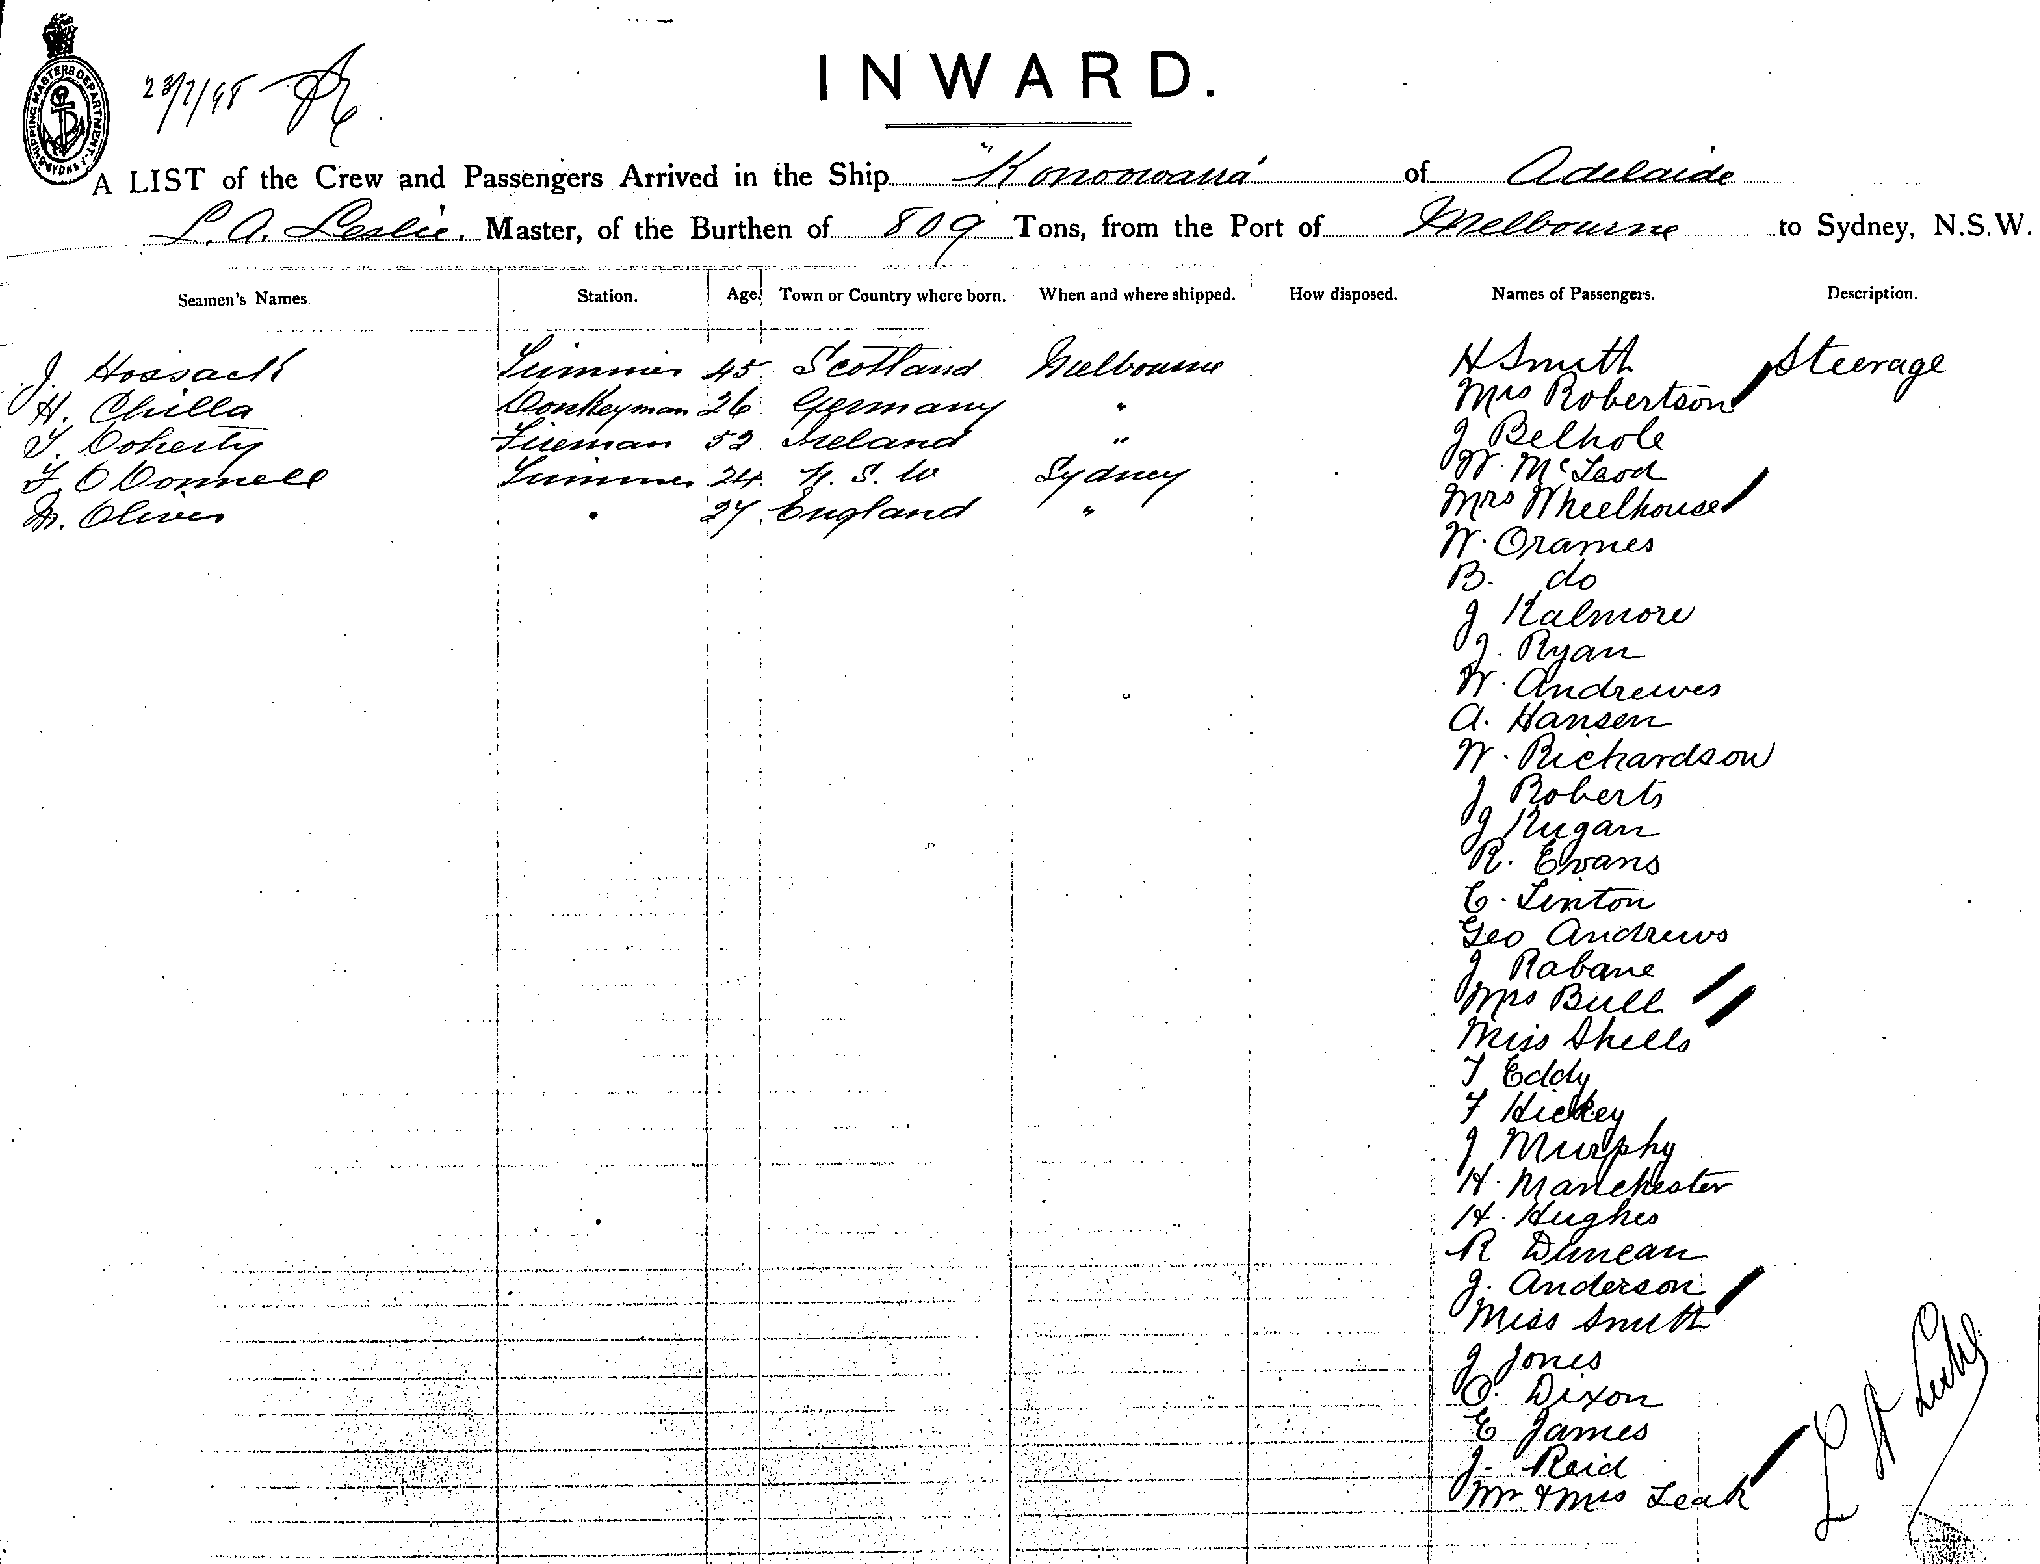 SHIPPING MASTERS DEPARTMENT
SYDNEY
INWARD.
A LIST of the Crew and Passengers Arrived in the Ship "Konoowarra" of Adelaide
L. A. Leslie. Master, of the Burthen of 809 Tons, from the Port of Melbourne to Sydney, N.S.W.
Seamen's Names. Station. Age. Town or Country where born. When and where shipped. How disposed. Names of Passengers. Description.
J. Hossack Trimmer 45 Scotland Melbourne H Smith Steerage
H. Chilla Donkeyman 26 Germany " Mrs Robertson
T. Doherty Fireman 52 Ireland " J Belhole
F. O'Donnell Trimmer 24 N. S. W Sydney W. McLeod
Oliver " 27 England " Mrs Wheelhouse
W. Orames
B. do
J Kalmore
J. Ryan
W. Andrewes
A. Hansen
W. Richardson
J Roberts
J Rugan
R. Evans
C. Linton
Geo Andrews
J Rabane
Mrs Bull
Miss Shells
T Eddy
F Hickey
J Murphy
H. Manchester
H. Hughes
R Duncan
J. Anderson
Miss Smith
J Jones
C. Dixon
E James
J. Reid
Mr & Mrs Leak